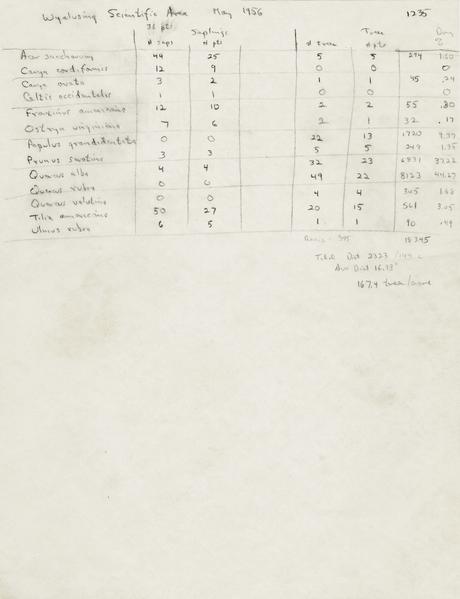 Wyalusing Scientific Area May 1956 1235
36 pts Saplings Trees Dom
# saps # pts # trees # pts %
Acer saccharum 44 25 5 5 274 1.50
Carya cordiformis 12 9 0 0 0 0
Carya ovata 3 2 1 1 45 .24
Celtis occidentalis 1 1 0 0 0 0
Fraxinus americana 12 10 2 2 55 .30
Ostrya virginiana 7 6 2 1 32 .17
Populus grandidentata 0 0 22 13 1720 9.37
Prunus serotina 3 3 5 5 249 1.35
Quercus alba 4 4 32 23 6831 37.22
Quercus rubra 0 0 49 22 8123 44.27
Quercus velutina 0 0 4 4 305 1.66
Tilia americana 50 27 20 15 561 3.05
Ulmus rubra 6 5 1 1 90 .49
18345
Total Dist 2323
Ave Dist 16.13'
167.4 trees/acre